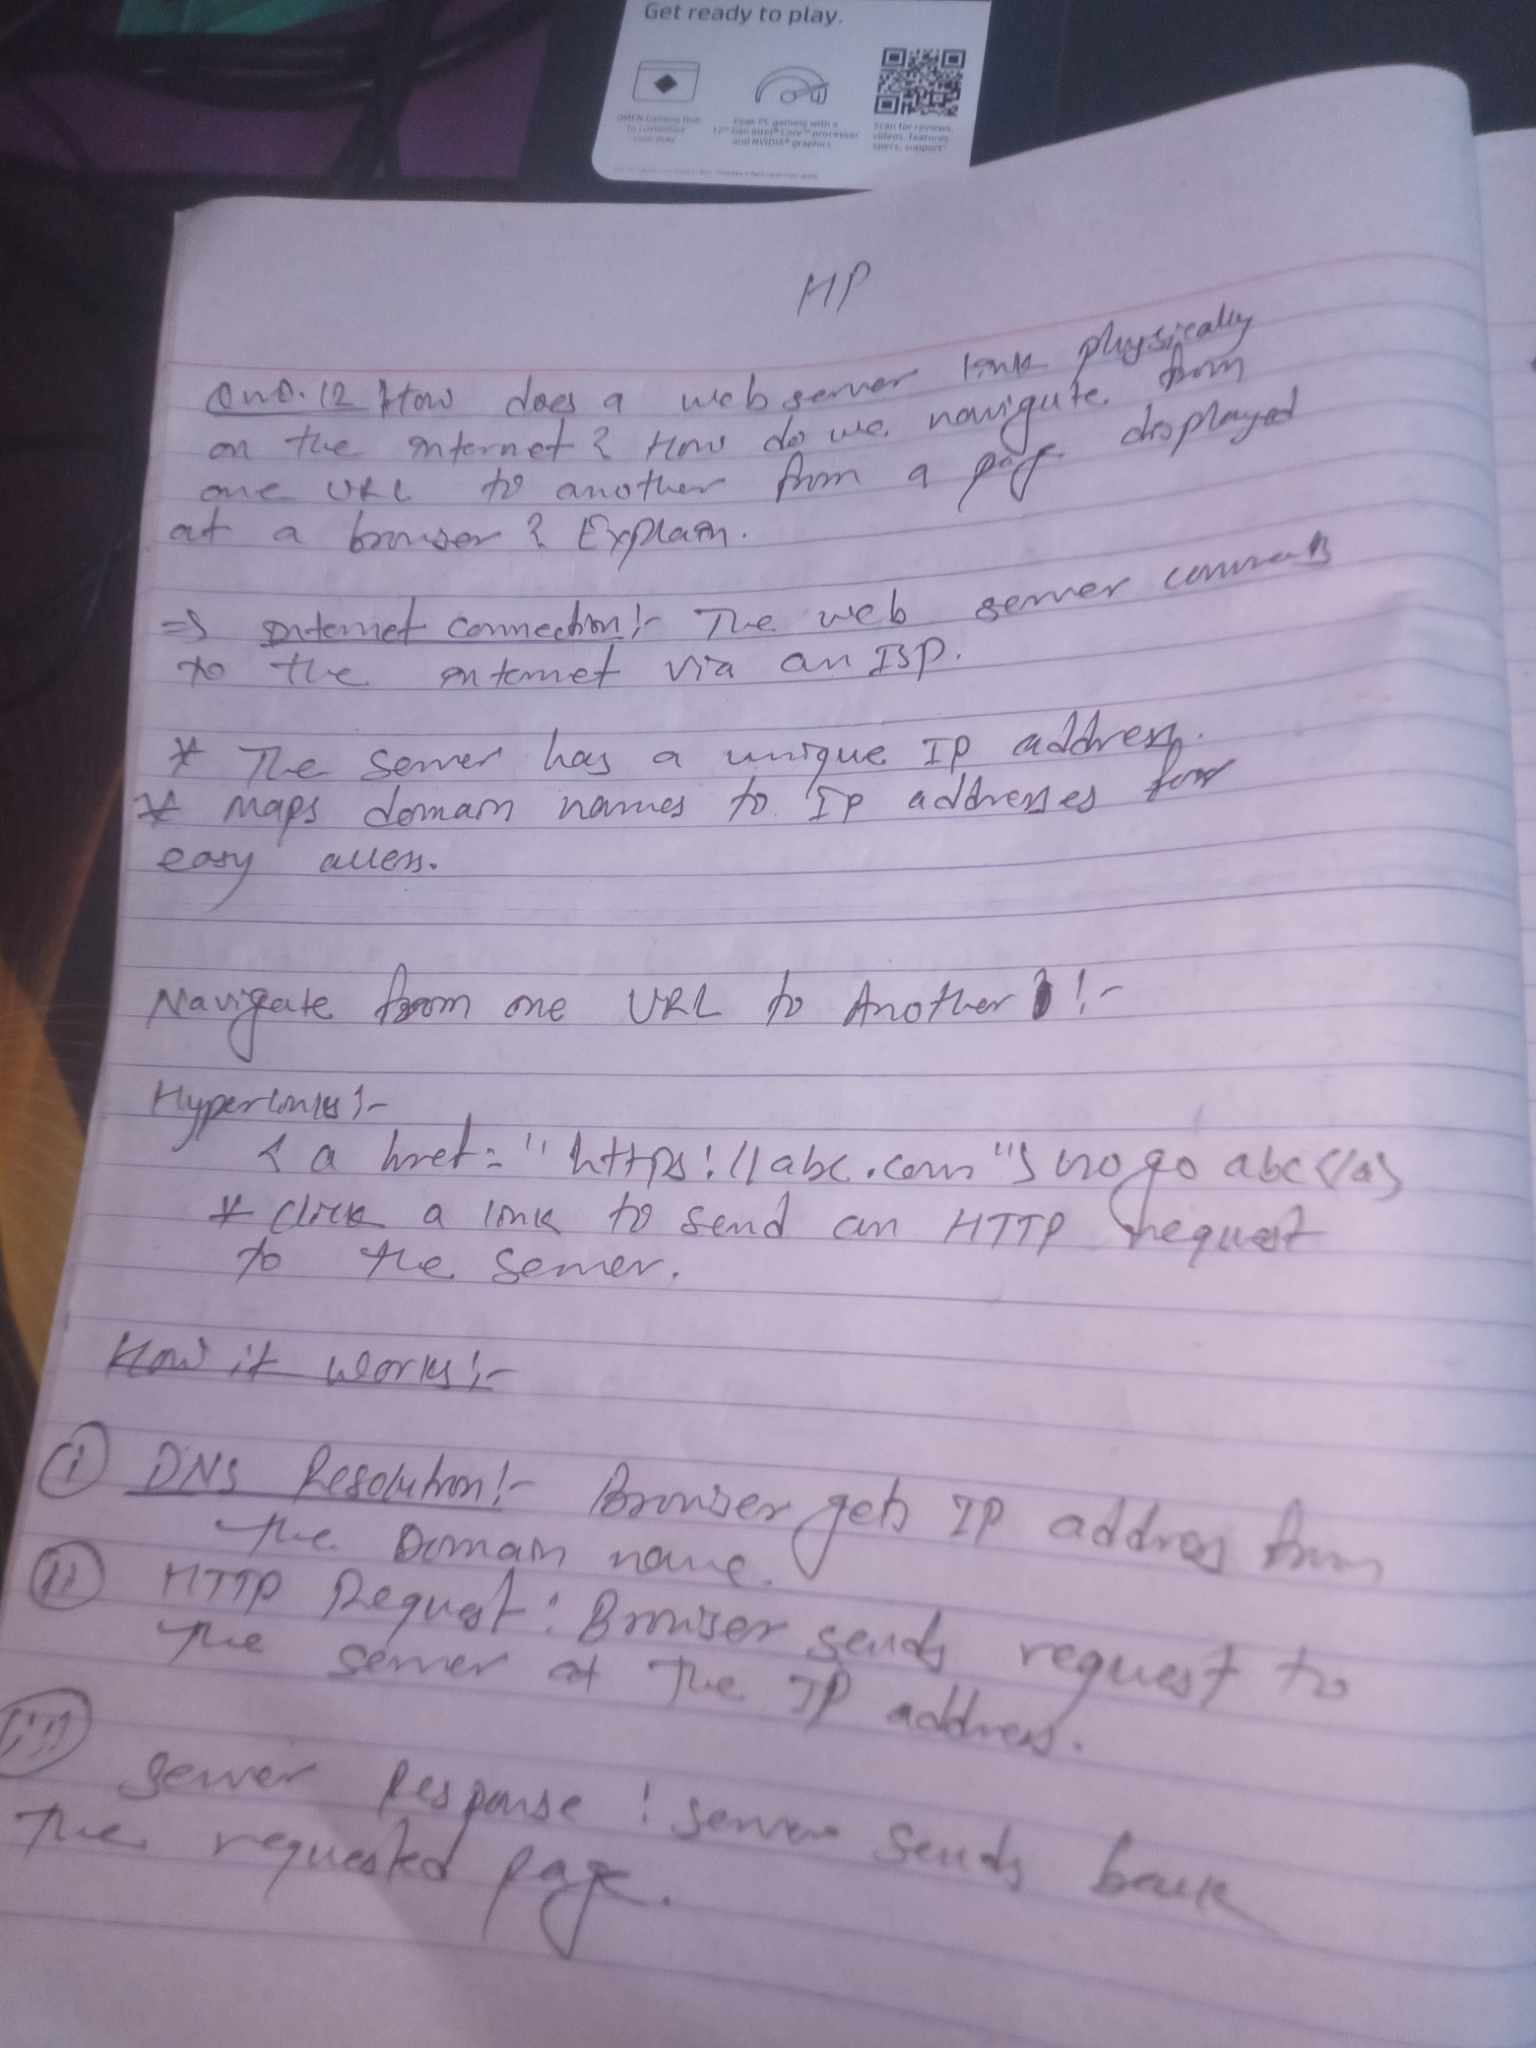 Get ready to play.
OMEN Gaming Hub
to customize
your play
Peak PC gaming with a
12th Gen Intel® Core™ processor
and NVIDIA® graphics
Scan for reviews,
videos, features,
specs, support
HP
Qno.12 How does a web server link physically
on the internet? How do we navigate from
one URL to another from a page displayed
at a browser? Explain.
=> Internet connection:- The web server connects
to the internet via an ISP.
* The server has a unique IP address.
* Maps domain names to IP addresses for
easy access.
Navigate from one URL to Another :-
Hyperlinks:-
<a href="https://abc.com"> go abc</a>
* Click a link to send an HTTP request
to the server.
How it works:-
(i) DNS Resolution:- Browser gets IP address from
the Domain name.
(ii) HTTP Request: Browser sends request to
the server at the IP address.
(iii)
Server Response: Server sends back
the requested page.